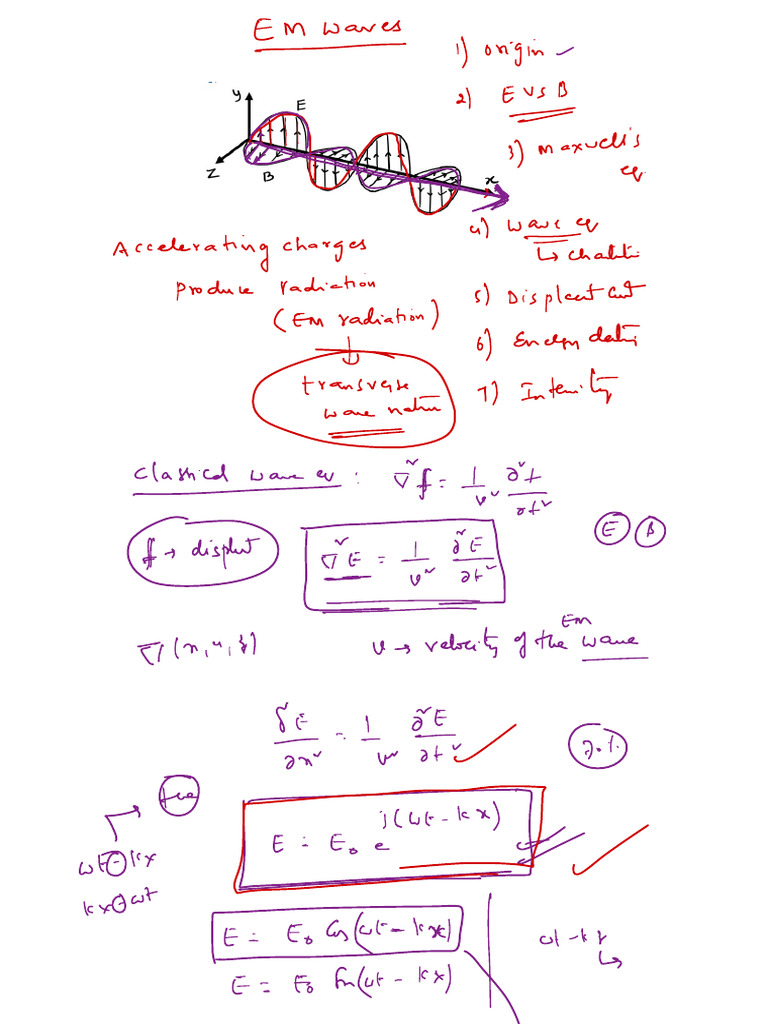 EM waves
1) origin
2) E vs B
3) Maxwell's
eq
4) wave eq
5) Displacent cut
6)
7) Intensity
y
E
z
B
x
Accelerating charges
produce radiation
(EM radiation)
transverse
wave nature
Classical wave eq : ∇²f = 1/v² ∂²f/∂t²
f → displt
∇²E = 1/v² ∂²E/∂t²
E B
∇(x, y, z)
v → velocity of the EM wave
∂²E/∂x² = 1/v² ∂²E/∂t²
+ve
ωt - kx
kx - ωt
E = E₀ e^{j(ωt - kx)}
E = E₀ Cos(ωt - kx)
E = E₀ Sin(ωt - kx)
ωt - kx